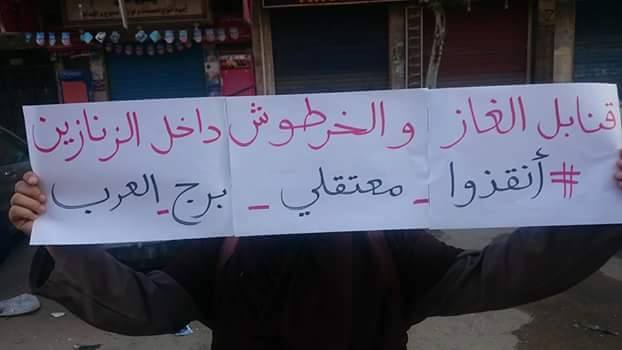 قنابل الغاز والخرطوش داخل الزنازين
#أنقذوا_معتقلي_برج_العرب